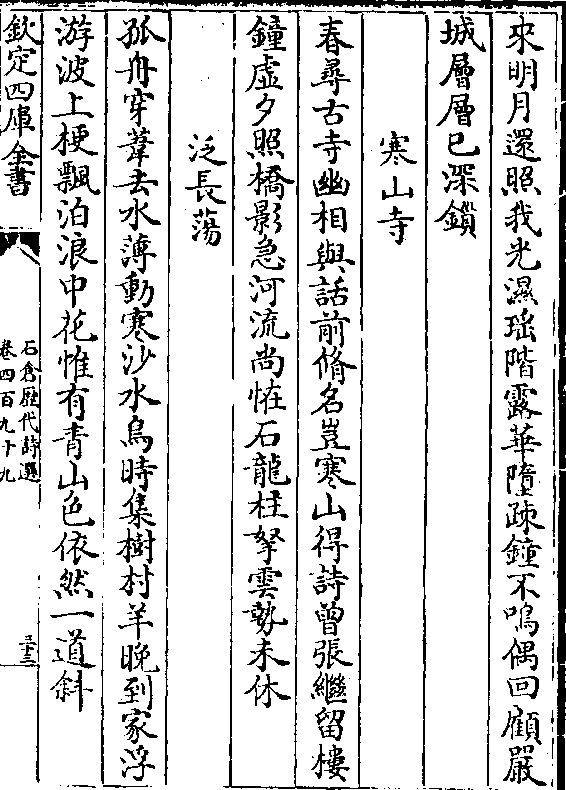 來明月還照我光濕瑶階露華墮疎鐘不鳴偶回顧嚴
城層層已深鎖
寒山寺
春尋古寺幽相與話前脩名豈寒山得詩曾張繼留樓
鐘虛夕照橋影急河流尚怪石龍柱拏雲勢未休
泛長蕩
孤舟穿葦去水譁動寒沙水鳥時集樹村羊晚到家浮
游波上梗飄泊浪中花惟有青山色依然一道斜
欽定四庫全書
石倉歷代詩選
卷四百九十九
三十三